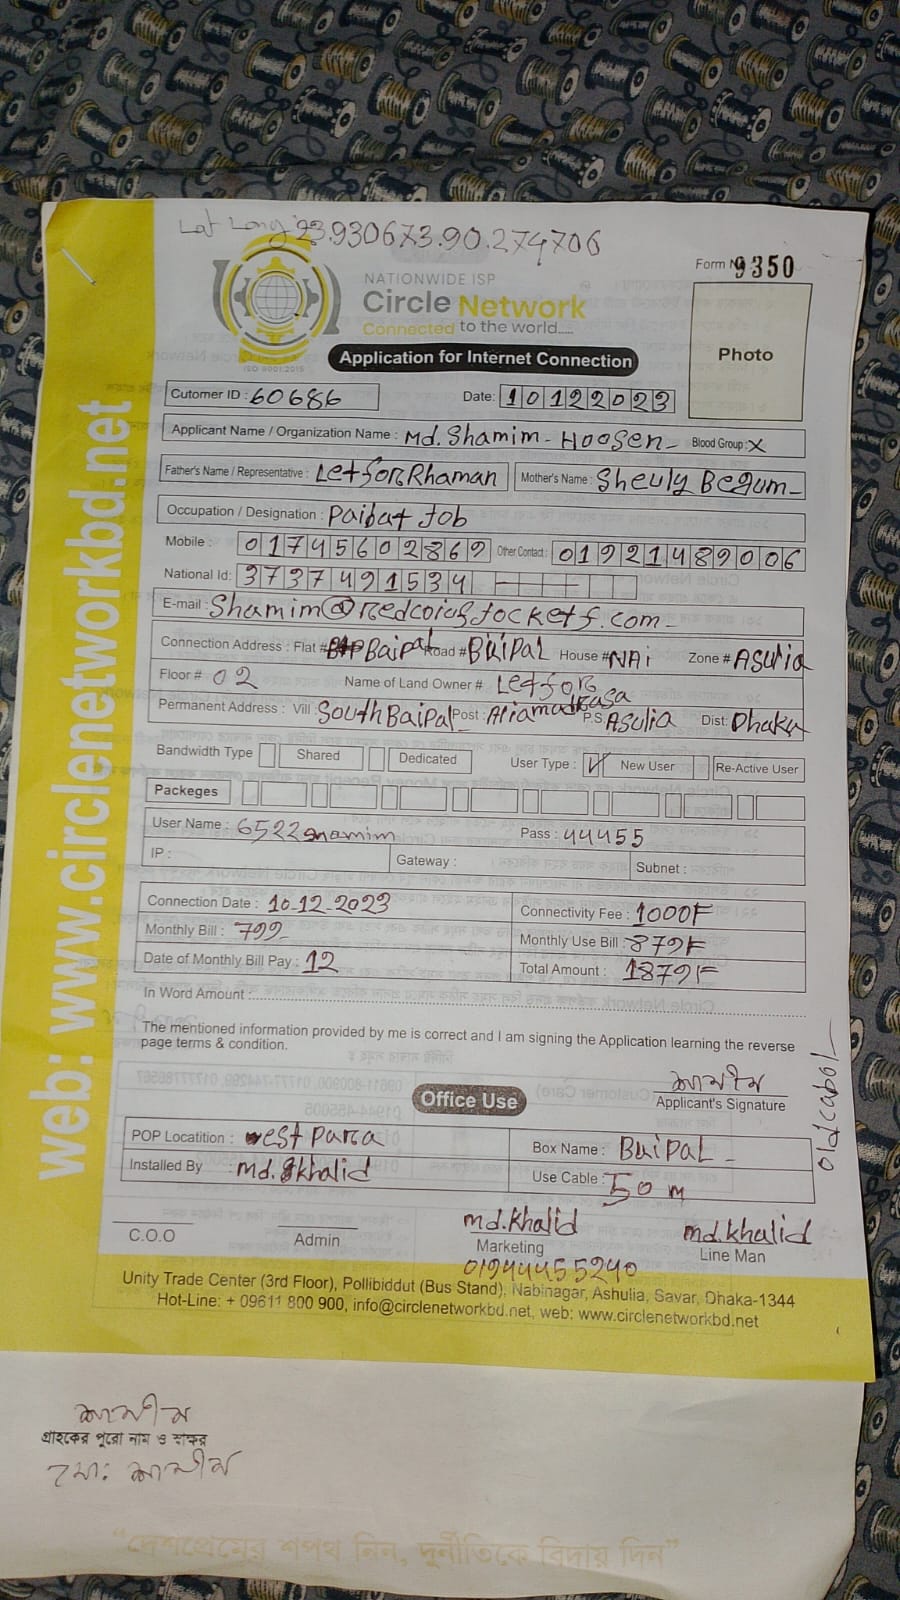 Lat Long 23.930673.90.274706
Form N 9350
NATIONWIDE ISP
Circle Network
Connected to the world.....
ISO 9001:2015
Application for Internet Connection
Photo
Cutomer ID : 60686 Date: 10122023
Applicant Name / Organization Name : Md. Shamim - Hoosen - Blood Group : X
Father's Name / Representative : LetforRhaman Mother's Name : Sheuly Begum -
Occupation / Designation : Paibat Job
Mobile : 01745602869 Other Contact : 01921489006
National Id: 3737491534
E-mail : Shamim@
Connection Address : Flat # Baipal Road # BaiPaL House # NAi Zone # ASuliA
Floor # 02 Name of Land Owner # Letfor
Permanent Address : Vill : South Baipal Post : Aliamadrasa P.S ASuliA Dist: Dhaka
Bandwidth Type Shared Dedicated User Type : ✓ New User Re-Active User
Packeges
User Name : 6522shamim Pass : 44455
IP : Gateway : Subnet :
Connection Date : 10-12-2023 Connectivity Fee : 1000F
Monthly Bill : 799 Monthly Use Bill : 879F
Date of Monthly Bill Pay : 12 Total Amount : 1879F
In Word Amount :
The mentioned information provided by me is correct and I am signing the Application learning the reverse
page terms & condition.
শামীম
Applicant's Signature
Office Use
POP Locatition : west para Box Name : BaiPaL -
Installed By : md. khalid Use Cable : 50 m
old cabol
md.khalid md.khalid
C.O.O Admin Marketing Line Man
01944455240
Unity Trade Center (3rd Floor), Pollibiddut (Bus Stand), Nabinagar, Ashulia, Savar, Dhaka-1344
Hot-Line: + 09611 800 900, info@circlenetworkbd.net, web: www.circlenetworkbd.net
web: www.circlenetworkbd.net
শামীম
গ্রাহকের পুরো নাম ও স্বাক্ষর
মো: শামীম
“দেশপ্রেমের শপথ নিন, দুর্নীতিকে বিদায় দিন”